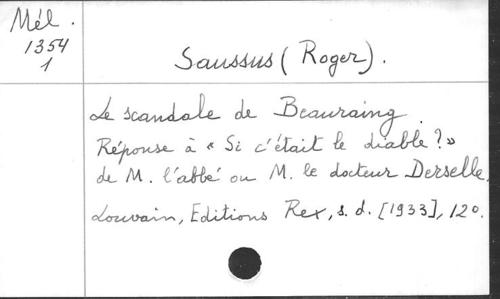 Mél.
1354
1
Saussus (Roger).
Le scandale de Beauraing.
Réponse à « Si c'était le diable ? »
de M. l'abbé ou M. le docteur Derselle.
Louvain, Editions Rex, s. d. [1933], 12o.